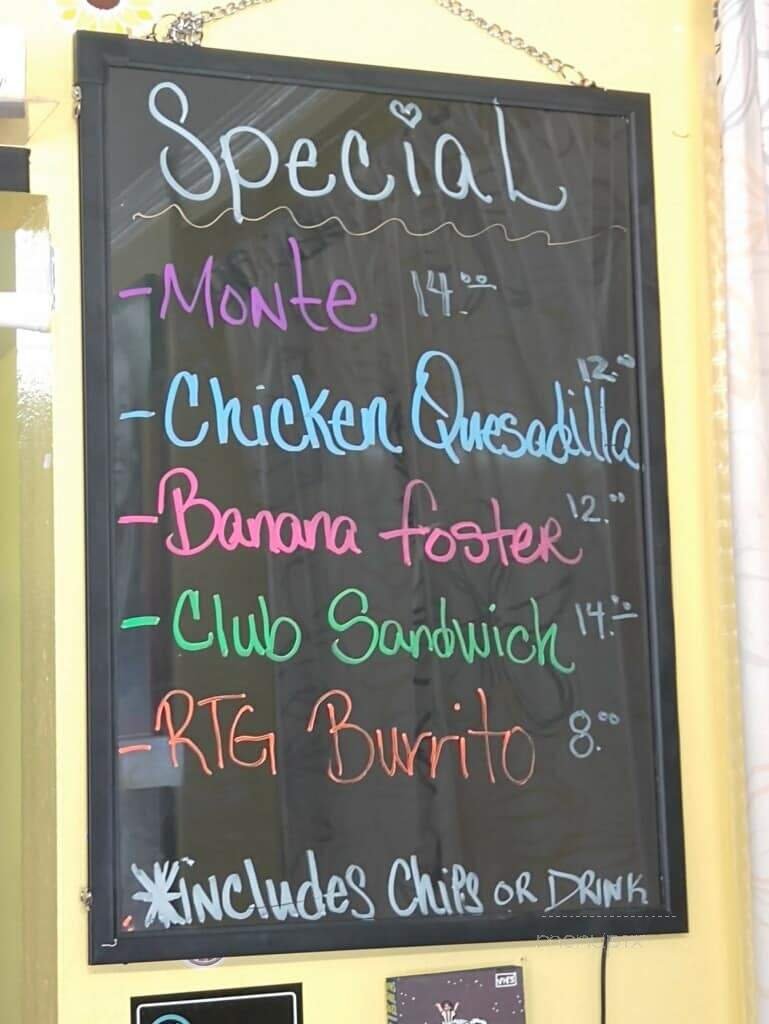 Special
- Monte 14.00
- Chicken Quesadilla 12.00
- Banana foster 12.00
- Club Sandwich 14.00
- RTG Burrito 8.00
*includes Chips OR DRINK
VHS